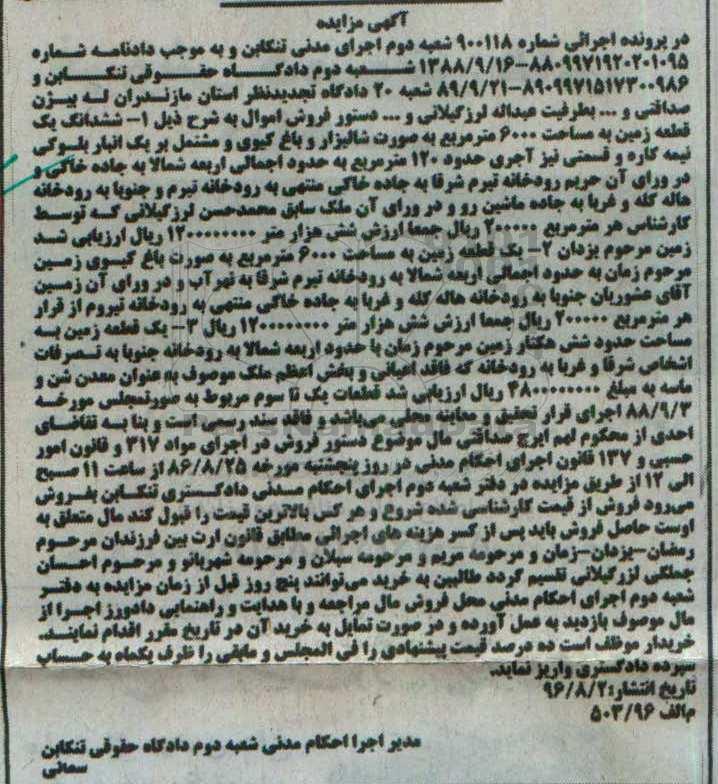 آگهی مزایده
در پرونده اجرائی شماره ۹۰۰۱۱۸ شعبه دوم اجرای مدنی تنکابن و به موجب دادنامه شماره
۸۸۰۹۹۷۱۹۲۰۲۰۱۰۹۵-۱۳۸۸/۹/۱۶ شعبه دوم دادگاه حقوقی تنکابن و
۸۹۰۹۹۷۱۵۱۷۳۰۰۹۸۶-۸۹/۹/۲۱ شعبه ۲۰ دادگاه تجدیدنظر استان مازندران له بیژن
صداقتی و ... بطرفیت عبداله لزرگیلانی و ... دستور فروش اموال به شرح ذیل ۱- ششدانگ یک
قطعه زمین به مساحت ۶۰۰۰ مترمربع به صورت شالیزار و باغ کیوی و مشتمل بر یک انبار بلوکی
نیمه کاره و قسمتی نیز آجری حدود ۱۲۰ مترمربع به حدود اجمالی اربعه شمالا به جاده خاکی و
در ورای آن حریم رودخانه تیرم شرقا به جاده خاکی منتهی به رودخانه تیرم و جنوبا به رودخانه
هاله کله و غربا به جاده ماشین رو و در ورای آن ملک سابق محمدحسن لزرگیلانی که توسط
کارشناس هر مترمربع ۲۰۰۰۰۰ ریال جمعا ارزش شش هزار متر ۱۲۰۰۰۰۰۰۰۰ ریال ارزیابی شد
زمین مرحوم یزدان ۲- یک قطعه زمین به مساحت ۶۰۰۰ مترمربع به صورت باغ کیوی زمین
مرحوم زمان به حدود اجمالی اربعه شمالا به رودخانه تیرم شرقا به نهرآب و در ورای آن زمین
آقای عشوریان جنوبا به رودخانه هاله کله و غربا به جاده خاکی منتهی به رودخانه تیروم از قرار
هر مترمربع ۲۰۰۰۰۰ ریال جمعا ارزش شش هزار متر ۱۲۰۰۰۰۰۰۰۰ ریال ۳- یک قطعه زمین به
مساحت حدود شش هکتار زمین مرحوم زمان با حدود اربعه شمالا به رودخانه جنوبا به تصرفات
اشخاص شرقا و غربا به رودخانه که فاقد اعیانی و بخش اعظم ملک موصوف به عنوان معدن شن و
ماسه به مبلغ ۴۸۰۰۰۰۰۰۰۰ ریال ارزیابی شد قطعات یک تا سوم مربوط به صورتمجلس مورخه
۸۸/۹/۳ اجرای قرار تحقیق و معاینه محلی می‌باشد و فاقد سند رسمی است و بنا به تقاضای
احدی از محکوم لهم ایرج صداقتی مال موضوع دستور فروش در اجرای مواد ۳۱۷ و قانون امور
حسبی و ۱۳۷ قانون اجرای احکام مدنی در روز پنجشنبه مورخه ۸۶/۸/۲۵ از ساعت ۱۱ صبح
الی ۱۲ از طریق مزایده در دفتر شعبه دوم اجرای احکام مدنی دادگستری تنکابن بفروش
می‌رود فروش از قیمت کارشناسی شده شروع و هر کس بالاترین قیمت را قبول کند مال متعلق به
اوست حاصل فروش باید پس از کسر هزینه های اجرائی مطابق قانون ارث بین فرزندان مرحوم
رمضان-یزدان-زمان و مرحومه مریم و مرحومه سبلان و مرحومه شهربانو و مرحوم احسان
جملگی لزرگیلانی تقسیم گردد طالبین به خرید می‌توانند پنج روز قبل از زمان مزایده به دفتر
شعبه دوم اجرای احکام مدنی محل فروش مال مراجعه و با هدایت و راهنمایی دادورز اجرا از
مال موصوف بازدید به عمل آورده و در صورت تمایل به خرید آن در تاریخ مقرر اقدام نمایند.
خریدار موظف است ده درصد قیمت پیشنهادی را فی المجلس و مابقی را ظرف یکماه به حساب
سپرده دادگستری واریز نماید.
تاریخ انتشار: ۹۶/۸/۲
م‌الف ۵۰۳/۹۶
مدیر اجرا احکام مدنی شعبه دوم دادگاه حقوقی تنکابن
سمائی